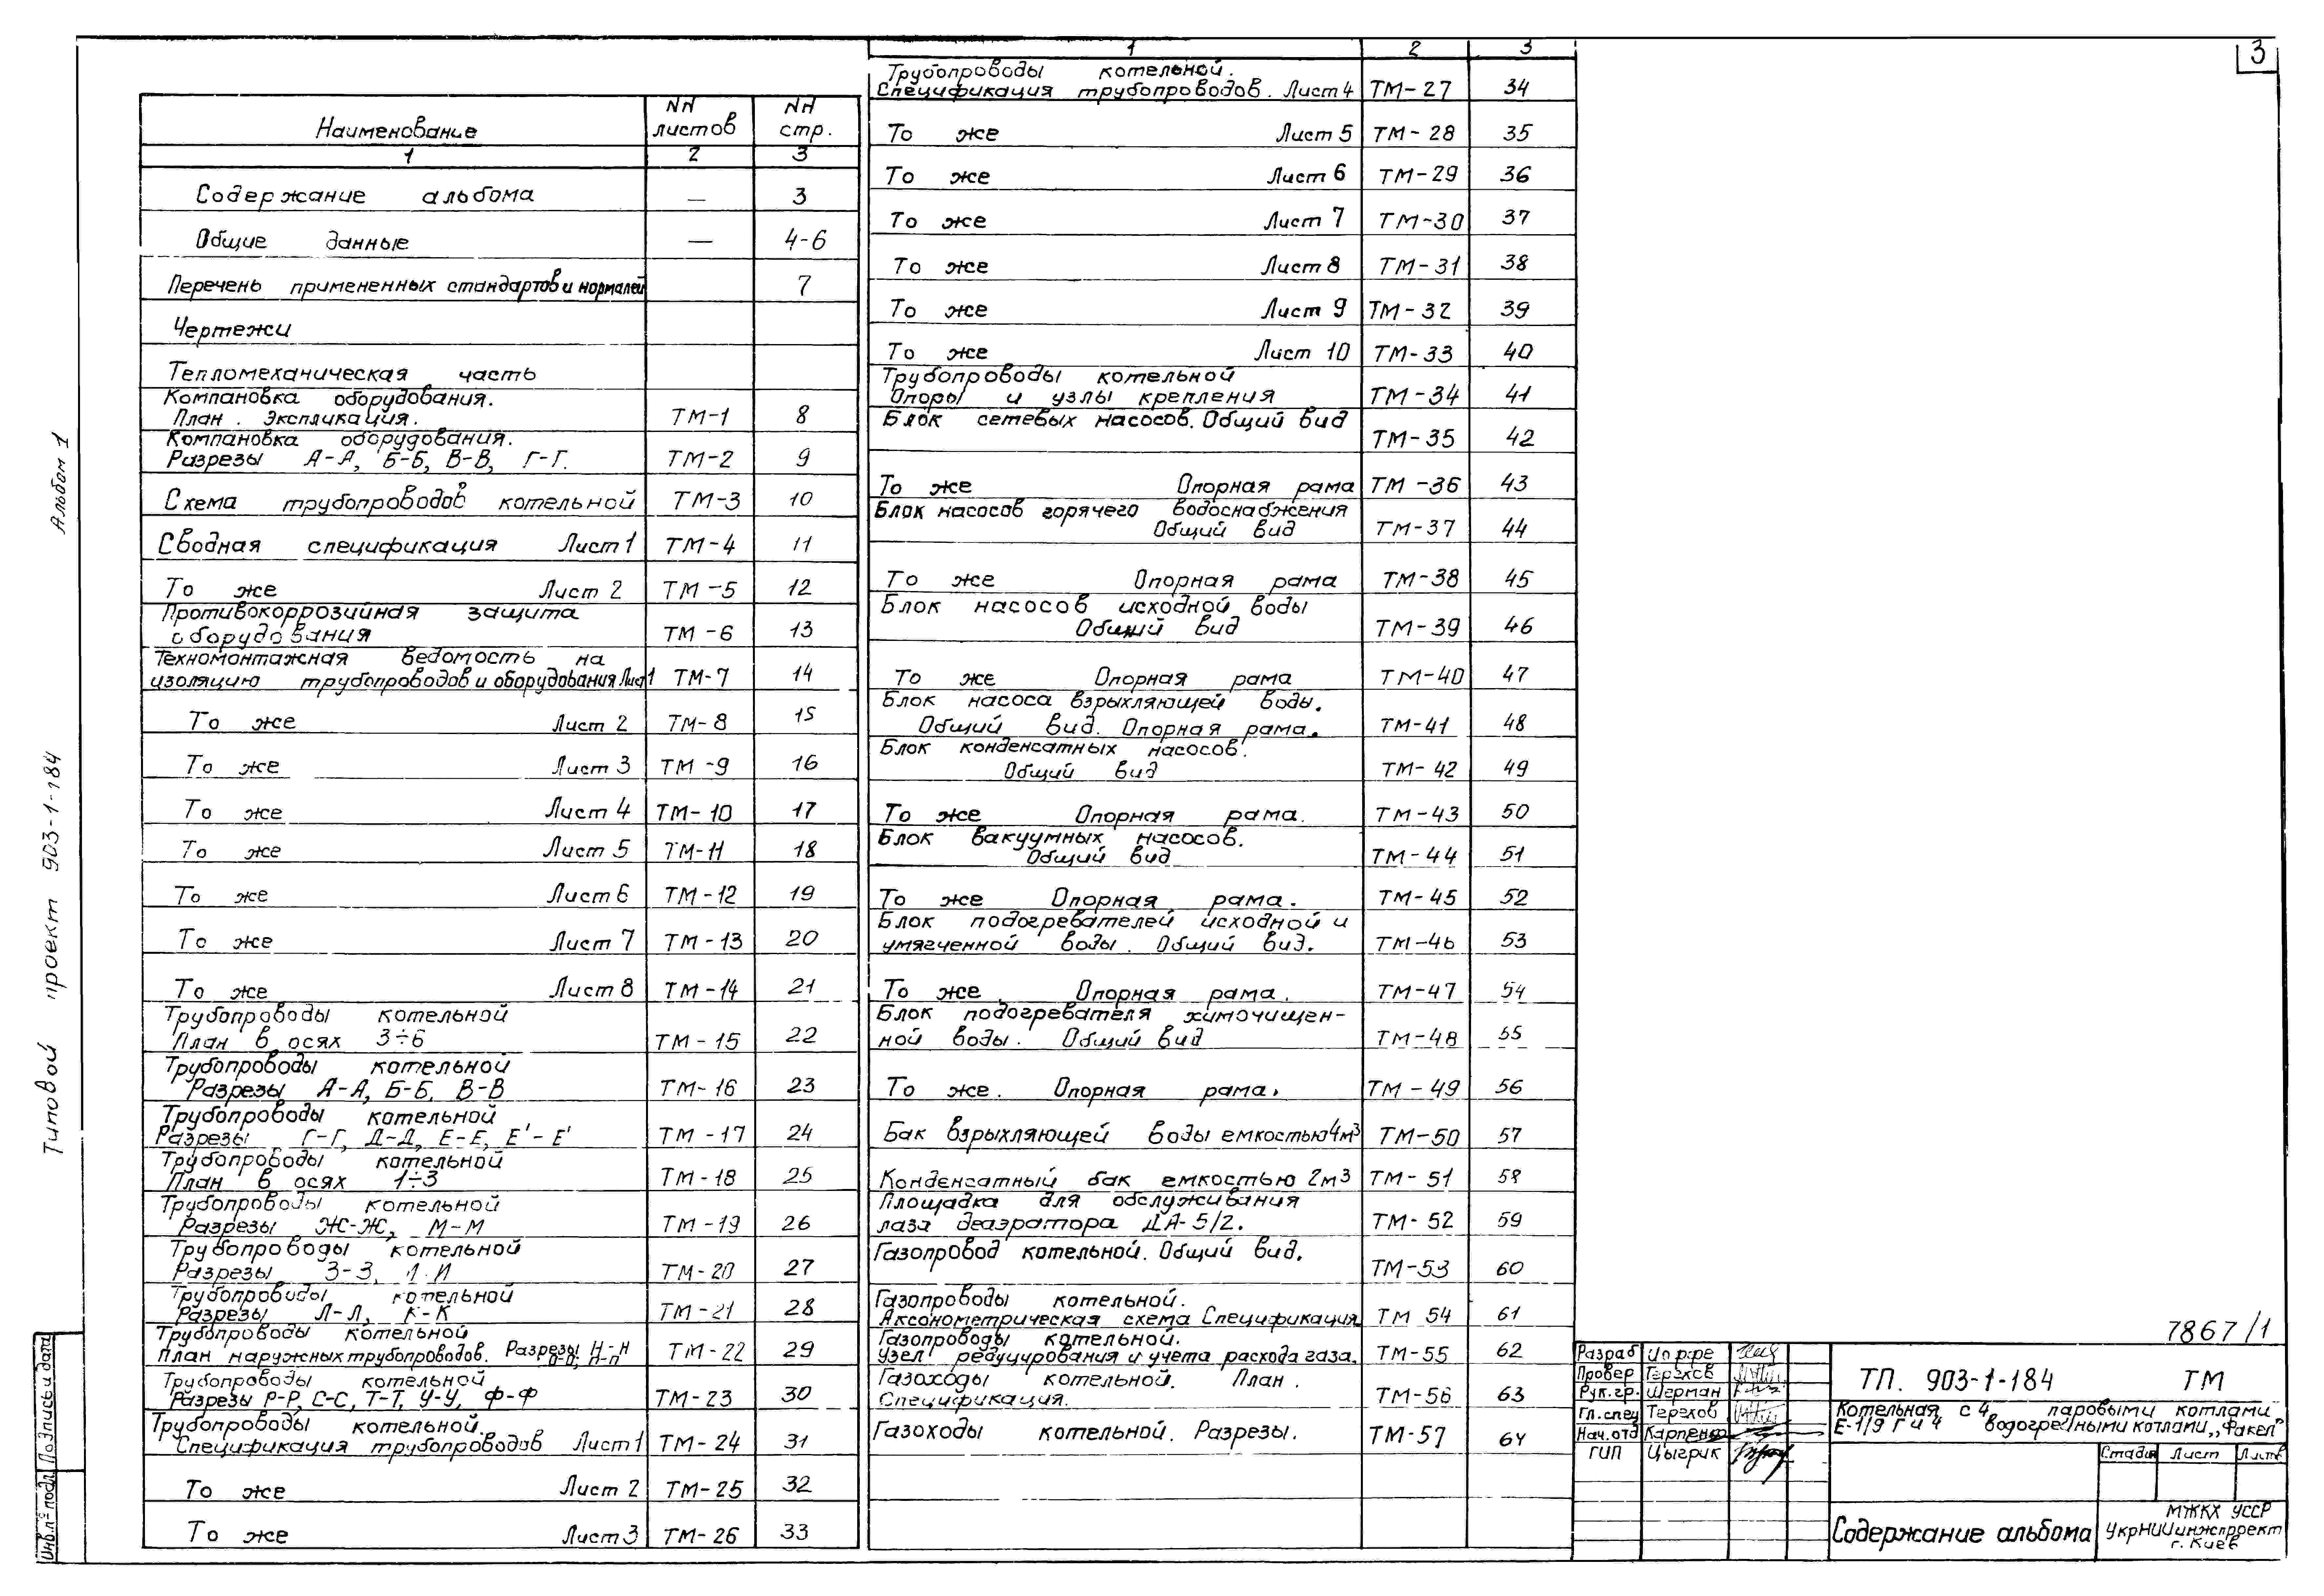 3
Альбом 1
Типовой проект 903-1-184
Инв.№ подл. Подпись и дата
Наименование NN листов NN стр.
1 2 3
Содержание альбома — 3
Общие данные — 4-6
Перечень примененных стандартов и нормалей 7
Чертежи
Тепломеханическая часть
Компановка оборудования.
План. Экспликация. ТМ-1 8
Компановка оборудования.
Разрезы А-А, Б-Б, В-В, Г-Г. ТМ-2 9
Схема трубопроводов котельной ТМ-3 10
Сводная спецификация Лист 1 ТМ-4 11
То же Лист 2 ТМ-5 12
Противокоррозийная защита
оборудования ТМ-6 13
Техномонтажная ведомость на
изоляцию трубопроводов и оборудования Лист 1 ТМ-7 14
То же Лист 2 ТМ-8 15
То же Лист 3 ТМ-9 16
То же Лист 4 ТМ-10 17
То же Лист 5 ТМ-11 18
То же Лист 6 ТМ-12 19
То же Лист 7 ТМ-13 20
То же Лист 8 ТМ-14 21
Трубопроводы котельной
План в осях 3÷6 ТМ-15 22
Трубопроводы котельной
Разрезы А-А, Б-Б, В-В ТМ-16 23
Трубопроводы котельной
Разрезы Г-Г, Д-Д, Е-Е, Е'-Е' ТМ-17 24
Трубопроводы котельной
План в осях 1÷3 ТМ-18 25
Трубопроводы котельной
Разрезы Ж-Ж, М-М ТМ-19 26
Трубопроводы котельной
Разрезы З-З, ТМ-20 27
Трубопроводы котельной
Разрезы Л-Л, К-К ТМ-21 28
Трубопроводы котельной
План наружных трубопроводов. Разрезы Н-Н О-О, П-П ТМ-22 29
Трубопроводы котельной
Разрезы Р-Р, С-С, Т-Т, У-У, Ф-Ф ТМ-23 30
Трубопроводы котельной.
Спецификация трубопроводов Лист 1 ТМ-24 31
То же Лист 2 ТМ-25 32
То же Лист 3 ТМ-26 33
1 2 3
Трубопроводы котельной.
Спецификация трубопроводов. Лист 4 ТМ-27 34
То же Лист 5 ТМ-28 35
То же Лист 6 ТМ-29 36
То же Лист 7 ТМ-30 37
То же Лист 8 ТМ-31 38
То же Лист 9 ТМ-32 39
То же Лист 10 ТМ-33 40
Трубопроводы котельной
Опоры и узлы крепления ТМ-34 41
Блок сетевых насосов. Общий вид ТМ-35 42
То же Опорная рама ТМ-36 43
Блок насосов горячего водоснабжения
Общий вид ТМ-37 44
То же Опорная рама ТМ-38 45
Блок насосов исходной воды
Общий вид ТМ-39 46
То же Опорная рама ТМ-40 47
Блок насоса взрыхляющей воды.
Общий вид. Опорная рама. ТМ-41 48
Блок конденсатных насосов.
Общий вид ТМ-42 49
То же Опорная рама. ТМ-43 50
Блок вакуумных насосов.
Общий вид ТМ-44 51
То же Опорная рама. ТМ-45 52
Блок подогревателей исходной и
умягченной воды. Общий вид. ТМ-46 53
То же Опорная рама. ТМ-47 54
Блок подогревателя химочищен-
ной воды. Общий вид ТМ-48 55
То же. Опорная рама. ТМ-49 56
Бак взрыхляющей воды емкостью 4м³ ТМ-50 57
Конденсатный бак емкостью 2м³ ТМ-51 58
Площадка для обслуживания
лаза деаэратора ДА-5/2. ТМ-52 59
Газопровод котельной. Общий вид. ТМ-53 60
Газопроводы котельной.
Аксонометрическая схема Спецификация ТМ 54 61
Газопроводы котельной.
Узел редуцирования и учета расхода газа. ТМ-55 62
Газоходы котельной. План.
Спецификация. ТМ-56 63
Газоходы котельной. Разрезы. ТМ-57 64
7867/1
Разраб Иоффе
Провер Терехов
Рук.гр. Шерман
Гл.спец Терехов
Нач.отд Карпенко
ГИП Цыгрик
ТП. 903-1-184 ТМ
Котельная с 4 паровыми котлами
Е-1/9 Г и 4 водогрейными котлами „Факел"
Стадия Лист Листов
Содержание альбома
МЖКХ УССР
УкрНИИинжпроект
г. Киев